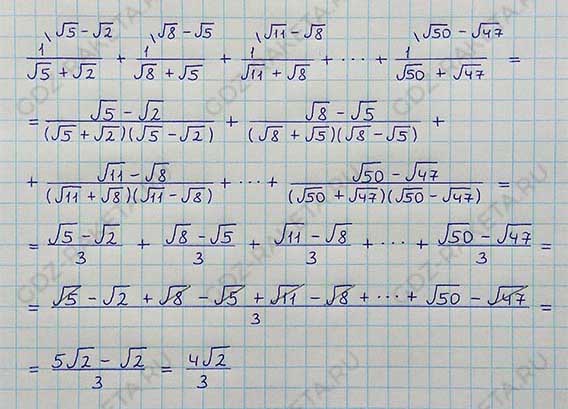 1\(√5 − √2)/(√5 + √2) + 1\(√8 − √5)/(√8 + √5) + 1\(√11 − √8)/(√11 + √8) + ⋯ + 1\(√50 − √47)/(√50 + √47) =
= (√5 − √2)/((√5 + √2)(√5 − √2)) + (√8 − √5)/((√8 + √5)(√8 − √5)) +
+ (√11 − √8)/((√11 + √8)(√11 − √8)) + ⋯ + (√50 − √47)/((√50 + √47)(√50 − √47)) =
= (√5 − √2)/3 + (√8 − √5)/3 + (√11 − √8)/3 + ⋯ + (√50 − √47)/3 =
= (√5 − √2 + √8 − √5 + √11 − √8 + ⋯ + √50 − √47)/3 =
= (5√2 − √2)/3 = 4√2/3
GDZ-RAKETA.RU